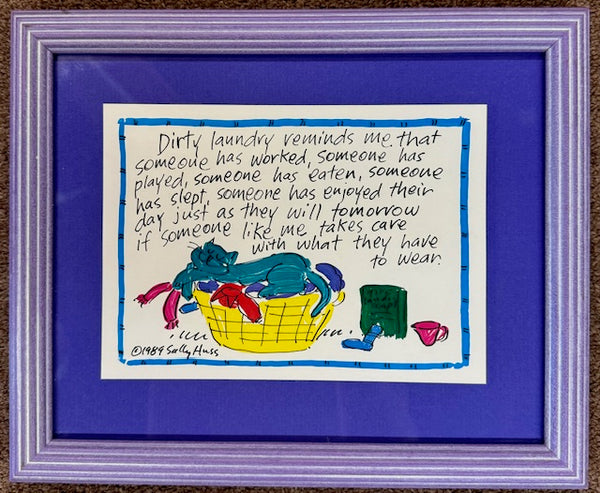 Dirty laundry reminds me that
someone has worked, someone has
played, someone has eaten, someone
has slept, someone has enjoyed their
day just as they will tomorrow
if someone like me takes care
with what they have
to wear.
©1989 Sally Huss